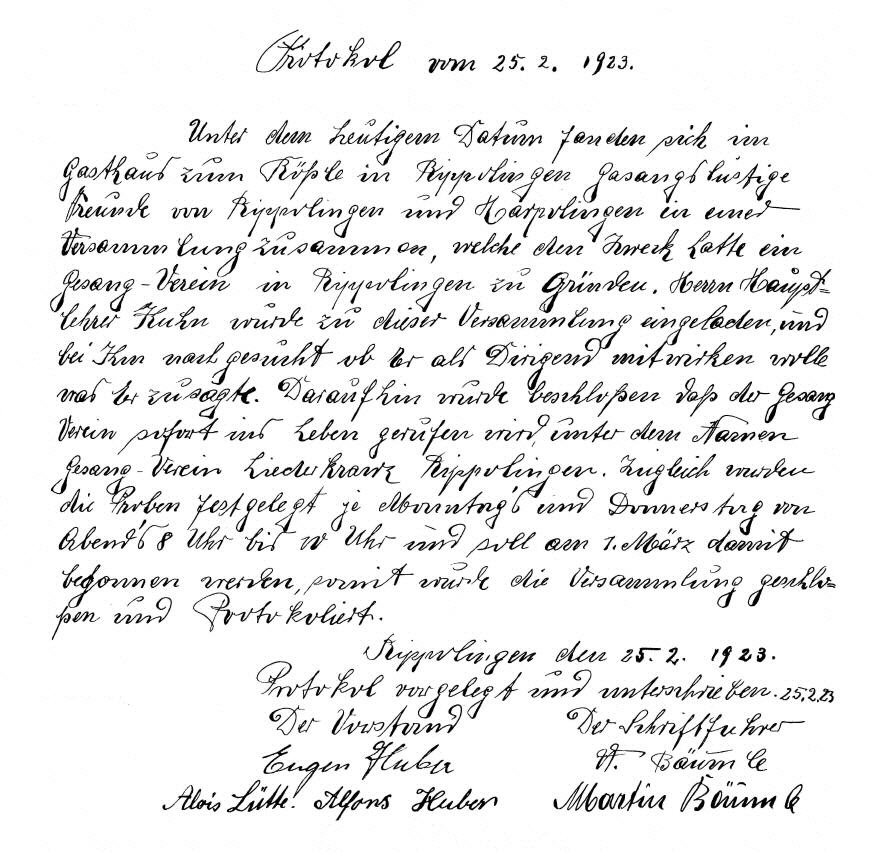 Protokol vom 25. 2. 1923.
Unter dem heutigem Datum fanden sich im
Gasthaus zum Rößle in Rippolingen Gasangslustige
Freunde von Rippolingen und Harpolingen in einer
Versammlung zusammen, welche den Zweck hatte ein
Gesang-Verein in Rippolingen zu Gründen. Herrn Haupt=
lehrer Kuhn wurde zu dieser Versammlung eingeladen, und
bei Ihm nachgesucht ob Er als Dirigend mitwirken wolle
was Er zusagte. Daraufhin wurde beschloßen daß der Gesang
Verein sofort ins Leben gerufen wird, unter dem Namen
Gesang-Verein Liederkranz Rippolingen. Zugleich wurden
die Proben festgelegt je Monntag's und Donnerstag von
Abend's 8 Uhr bis 10 Uhr und soll am 1. März damit
begonnen werden, somit wurde die Versammlung geschlo=
ßen und Protokoliert.
Rippolingen den 25. 2. 1923.
Protokol vorgelegt und unterschrieben. 25.2.23
Der Vorstand Der Schriftfuhrer
Eugen Huber A. Bäumle
Alois Lütte. Alfons Huber Martin Bäumle